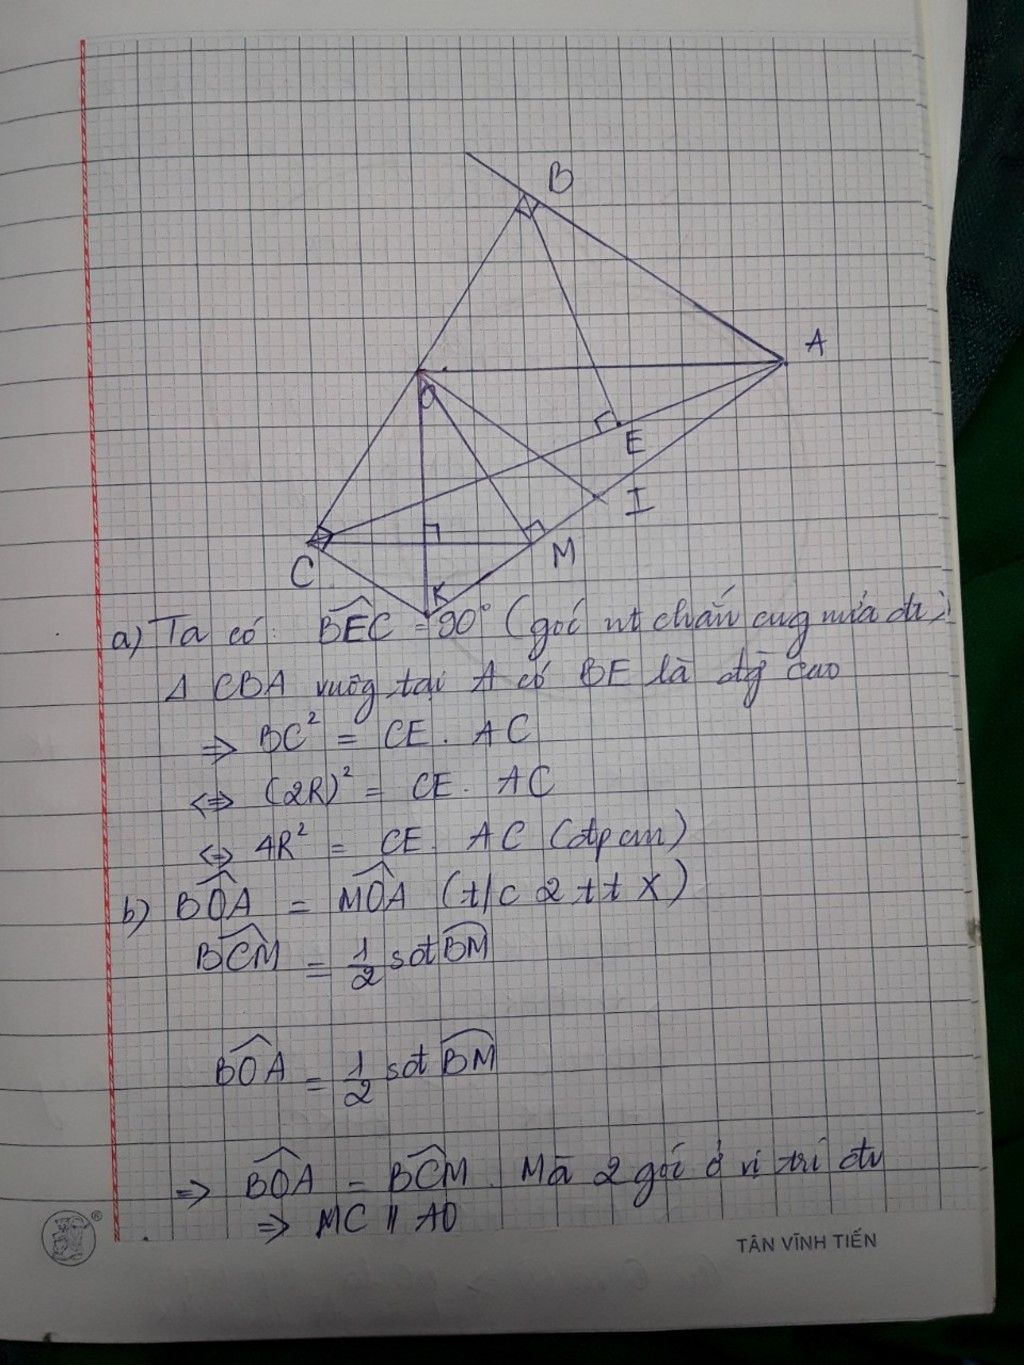 B
A
O
E
I
C
M
K
a) Ta có: BEC = 90° (góc nt chắn cug nửa đt)
Δ CBA vuôg tại A có BE là đg cao
⇒ BC² = CE. AC
⇔ (2R)² = CE. AC
⇔ 4R² = CE. AC (đpcm)
b) BOA = MOA (t/c 2 tt X)
BCM = 1/2 sđt BM
BOA = 1/2 sđt BM
⇒ BOA = BCM. Mà 2 góc ở vị trí đv
⇒ MC // AO
®
TÂN VĨNH TIẾN